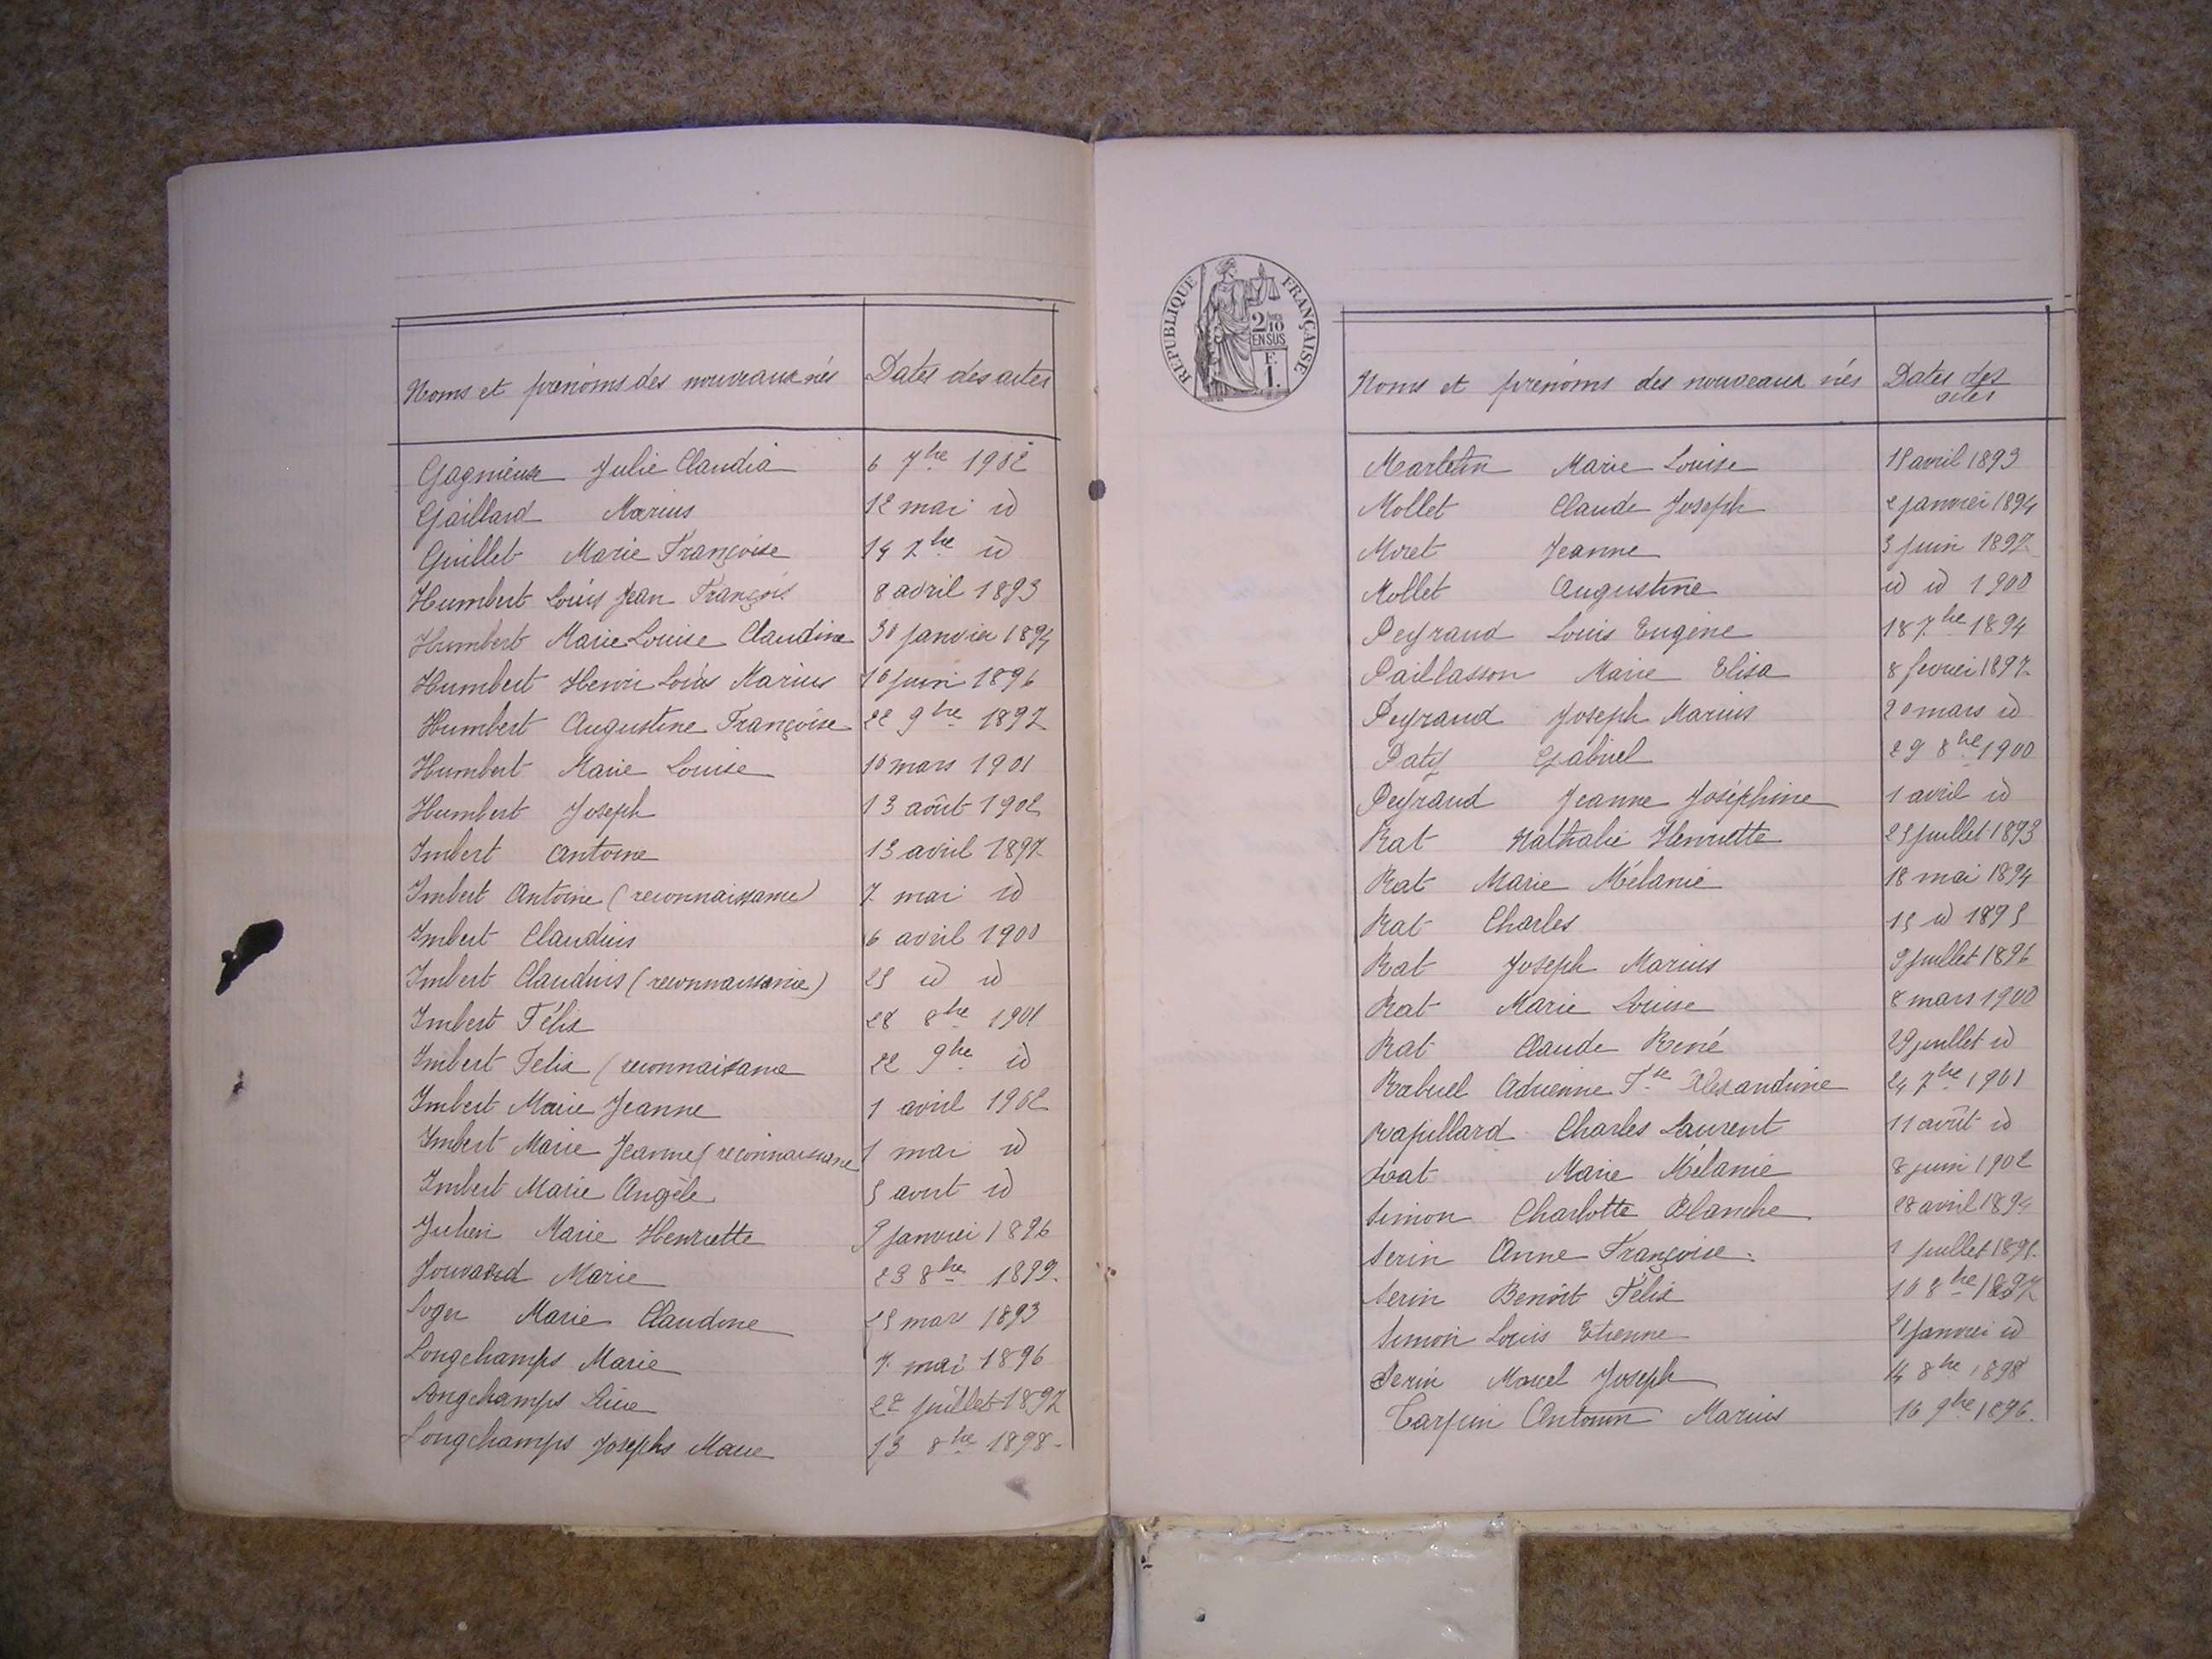 Noms et prénoms des nouveaux nés Dates des actes
Gagnieux Julie Claudia 6 7bre 1902
Gaillard Marius 12 mai id
Guillet Marie Françoise 14 7bre id
Humbert Louis Jean François 8 avril 1893
Humbert Marie Louise Claudine 30 janvier 1894
Humbert Henri Louis Marius 10 juin 1896
Humbert Augustine Françoise 22 9bre 1897
Humbert Marie Louise 10 mars 1901
Humbert Joseph 13 août 1902
Imbert Antoine 13 avril 1897
Imbert Antoine (reconnaissance) 7 mai id
Imbert Claudius 6 avril 1900
Imbert Claudius (reconnaissance) 25 id id
Imbert Félix 28 8bre 1901
Imbert Felix (reconnaissance 22 9bre id
Imbert Marie Jeanne 1 avril 1902
Imbert Marie Jeanne (reconnaissance 1 mai id
Imbert Marie Angèle 5 aout id
Julien Marie Henriette 9 janvier 1896
Jouvard Marie 23 8bre 1899
Loger Marie Claudine 25 mars 1893
Longchamps Marie 7 mai 1896
Longchamps 22 juillet 1897
Longchamps Josephe Marie 13 8bre 1898
REPUBLIQUE FRANÇAISE
2/10
EN SUS
F.
1.
Noms et prénoms des nouveaux nés Dates des
actes
Marie Louise avril 1893
Mollet Claude Joseph 2 janvier 1894
Moret Jeanne 3 juin 1897
Mollet Augustine id id 1900
Peyraud Louis Eugène 18 7bre 1894
Paillasson Marie Elisa 8 fevrier 1897
Peyraud Joseph Marius 20 mars id
Paty Gabriel 29 8bre 1900
Peyraud Jeanne Joséphine 1 avril id
Rat Nathalie Henriette 25 juillet 1893
Rat Marie Mélanie 18 mai 1894
Rat Charles 15 id 1895
Rat Joseph Marius 9 juillet 1896
Rat Marie Louise 8 mars 1900
Rat Claude René 29 juillet id
Rabuel Adrienne Alexandrine 24 7bre 1901
Rapillard Charles Laurent 11 août id
Rat Marie Mélanie 8 juin 1902
Simon Charlotte Blanche 28 avril
Serin Anne Françoise juillet
Serin Benoît Félix 10 8bre 1897
Simon Louis Etienne janvier id
Serin Marcel Joseph 14 8bre 1898
Tarpin Antonin Marius 16 9bre 1896